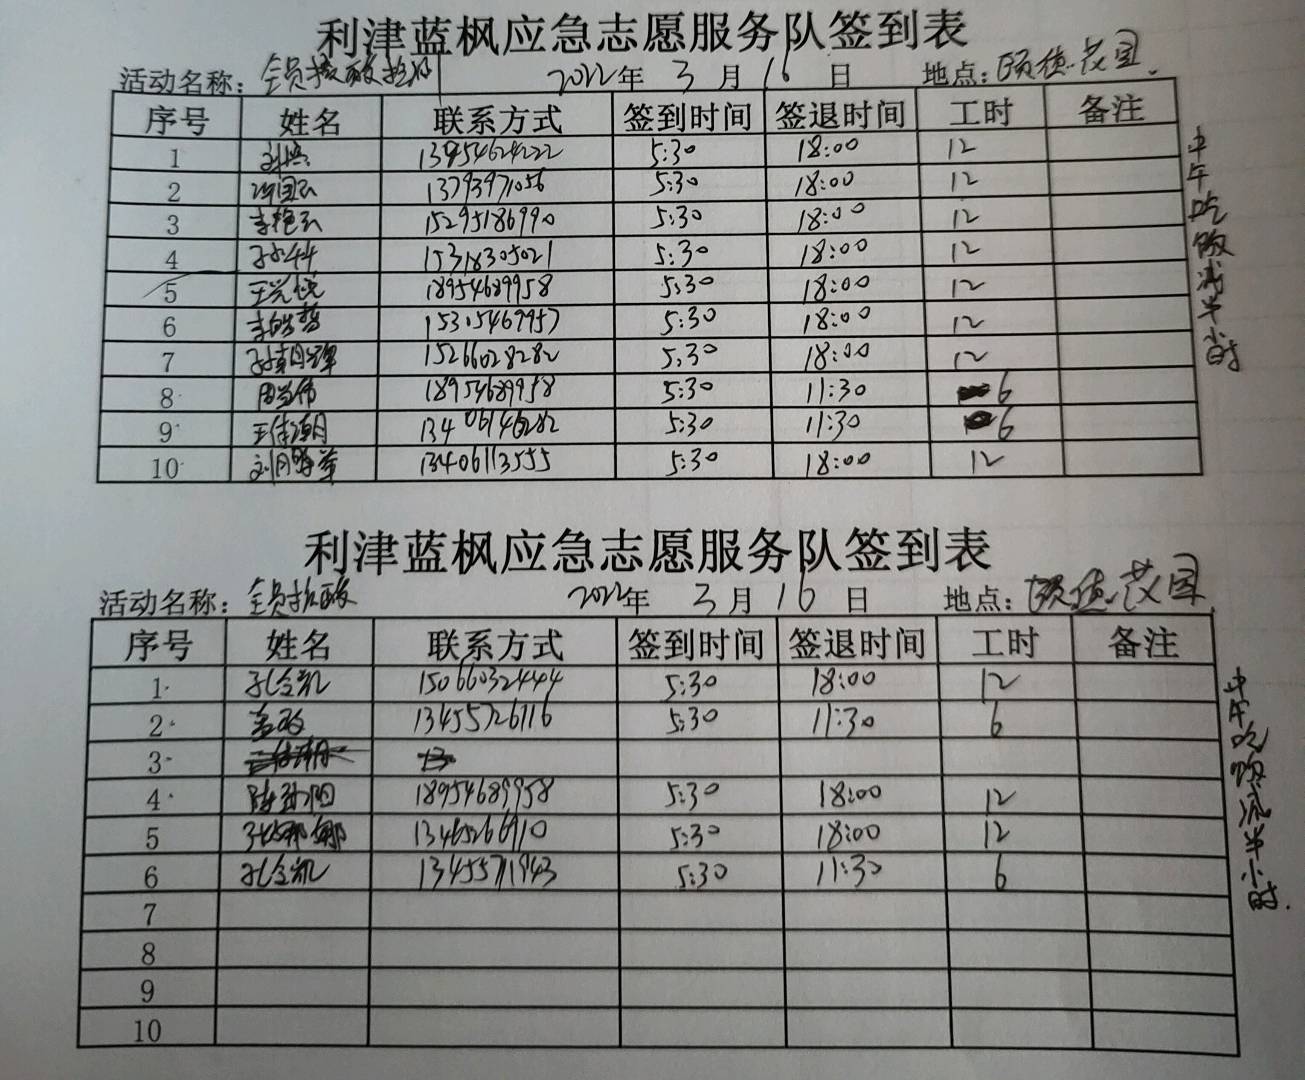 利津蓝枫应急志愿服务队签到表
活动名称：全员核酸检测 2022年 3月16日 地点：颐德花园
序号 姓名 联系方式 签到时间 签退时间 工时 备注
1 13954624222 5:30 18:00 12
2 13793971056 5:30 18:00 12
3 李艳云 15295186990 5:30 18:00 12
4 15318305021 5:30 18:00 12
5 王兴悦 18954689958 5:30 18:00 12
6 李皓哲 15305469957 5:30 18:00 12
7 15266028282 5:30 18:00 12
8 周岩伟 18954689958 5:30 11:30 6
9 13406146282 5:30 11:30 6
10 13406113555 5:30 18:00 12
中午吃饭减半小时
利津蓝枫应急志愿服务队签到表
活动名称：全员核酸 2022年 3月16日 地点：颐德花园
序号 姓名 联系方式 签到时间 签退时间 工时 备注
1 孔令凯 15066032444 5:30 18:00 12
2 13455726116 5:30 11:30 6
3
4 18954689958 5:30 18:00 12
5 张娜娜 13465266910 5:30 18:00 12
6 孔令凯 13455711943 5:30 11:30 6
7
8
9
10
中午吃饭减半小时.